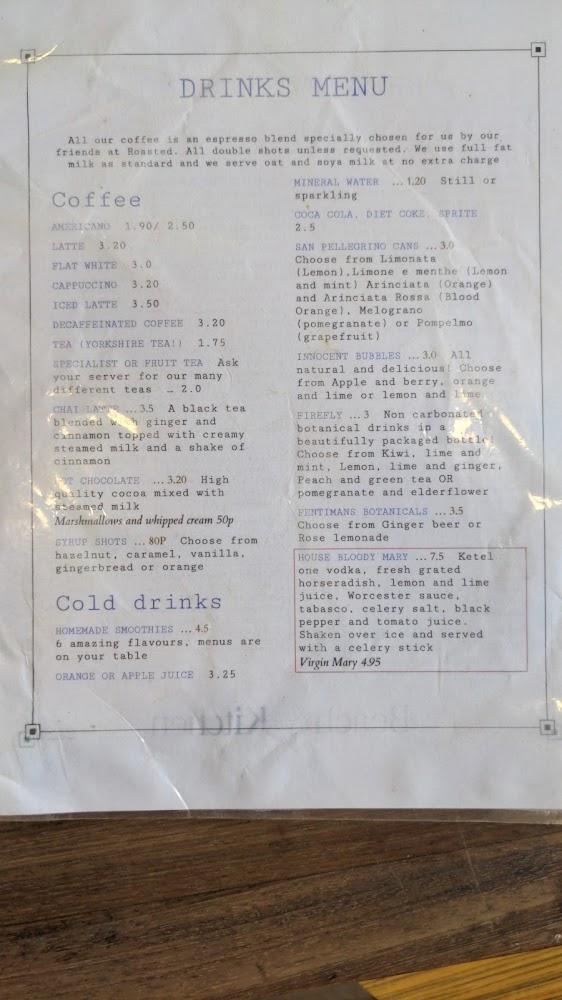 DRINKS MENU
All our coffee is an espresso blend specially chosen for us by our
friends at Roasted. All double shots unless requested. We use full fat
milk as standard and we serve oat and soya milk at no extra charge
Coffee
AMERICANO 1.90/ 2.50
LATTE 3.20
FLAT WHITE 3.0
CAPPUCCINO 3.20
ICED LATTE 3.50
DECAFFEINATED COFFEE 3.20
TEA (YORKSHIRE TEA!) 1.75
SPECIALIST OR FRUIT TEA Ask
your server for our many
different teas … 2.0
CHAI LATTE ... 3.5 A black tea
blended with ginger and
cinnamon topped with creamy
steamed milk and a shake of
cinnamon
HOT CHOCOLATE ... 3.20 High
quality cocoa mixed with
steamed milk
Marshmallows and whipped cream 50p
SYRUP SHOTS ... 80P Choose from
hazelnut, caramel, vanilla,
gingerbread or orange
Cold drinks
HOMEMADE SMOOTHIES ... 4.5
6 amazing flavours, menus are
on your table
ORANGE OR APPLE JUICE 3.25
MINERAL WATER ... 1.20 Still or
sparkling
COCA COLA, DIET COKE, SPRITE
2.5
SAN PELLEGRINO CANS ... 3.0
Choose from Limonata
(Lemon),Limone e menthe (Lemon
and mint) Arinciata (Orange)
and Arinciata Rossa (Blood
Orange), Melograno
(pomegranate) or Pompelmo
(grapefruit)
INNOCENT BUBBLES ... 3.0 All
natural and delicious! Choose
from Apple and berry, orange
and lime or lemon and lime
FIREFLY ... 3 Non carbonated
botanical drinks in a
beautifully packaged bottle!
Choose from Kiwi, lime and
mint, Lemon, lime and ginger,
Peach and green tea OR
pomegranate and elderflower
FENTIMANS BOTANICALS ... 3.5
Choose from Ginger beer or
Rose lemonade
HOUSE BLOODY MARY ... 7.5 Ketel
one vodka, fresh grated
horseradish, lemon and lime
juice, Worcester sauce,
tabasco, celery salt, black
pepper and tomato juice.
Shaken over ice and served
with a celery stick
Virgin Mary 4.95
Kitchen